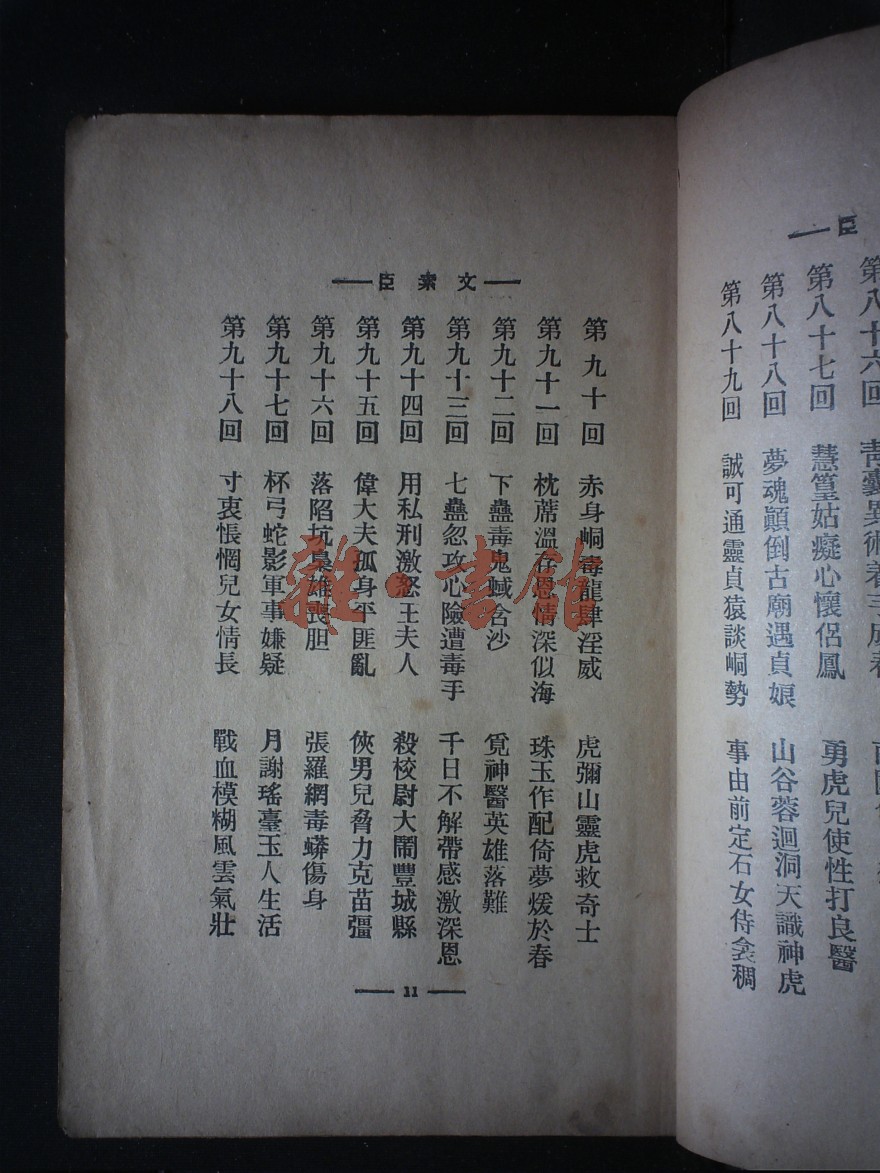 臣
第八十六回 靑囊異術着手成春
第八十七回 慧篁姑癡心懷侶鳳 勇虎兒使性打良醫
第八十八回 夢魂顚倒古廟遇貞娘 山谷蓉迴洞天識神虎
第八十九回 誠可通靈貞猿談峒勢 事由前定石女侍衾稠
文素臣
第九十回 赤身峒毒龍肆淫威 虎彌山靈虎救奇士
第九十一回 枕蓆溫存恩情深似海 珠玉作配倚夢煖於春
第九十二回 下蠱毒鬼蜮含沙 覓神醫英雄落難
第九十三回 七蠱忽攻心險遭毒手 千日不解帶感激深恩
第九十四回 用私刑激怒王夫人 殺校尉大鬧豐城縣
第九十五回 偉大夫孤身平匪亂 俠男兒脅力克苗彊
第九十六回 落陷抗梟雄喪胆 張羅網毒蟒傷身
第九十七回 杯弓蛇影軍事嫌疑 月謝瑤臺玉人生活
第九十八回 寸衷悵惘兒女情長 戰血模糊風雲氣壯
11
雜·書館